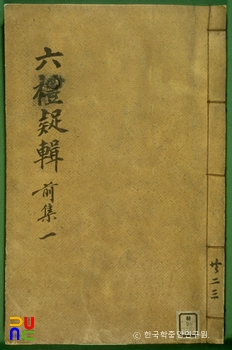 六禮疑輯 前集 一
二三
ⓒ 한국학중앙연구원